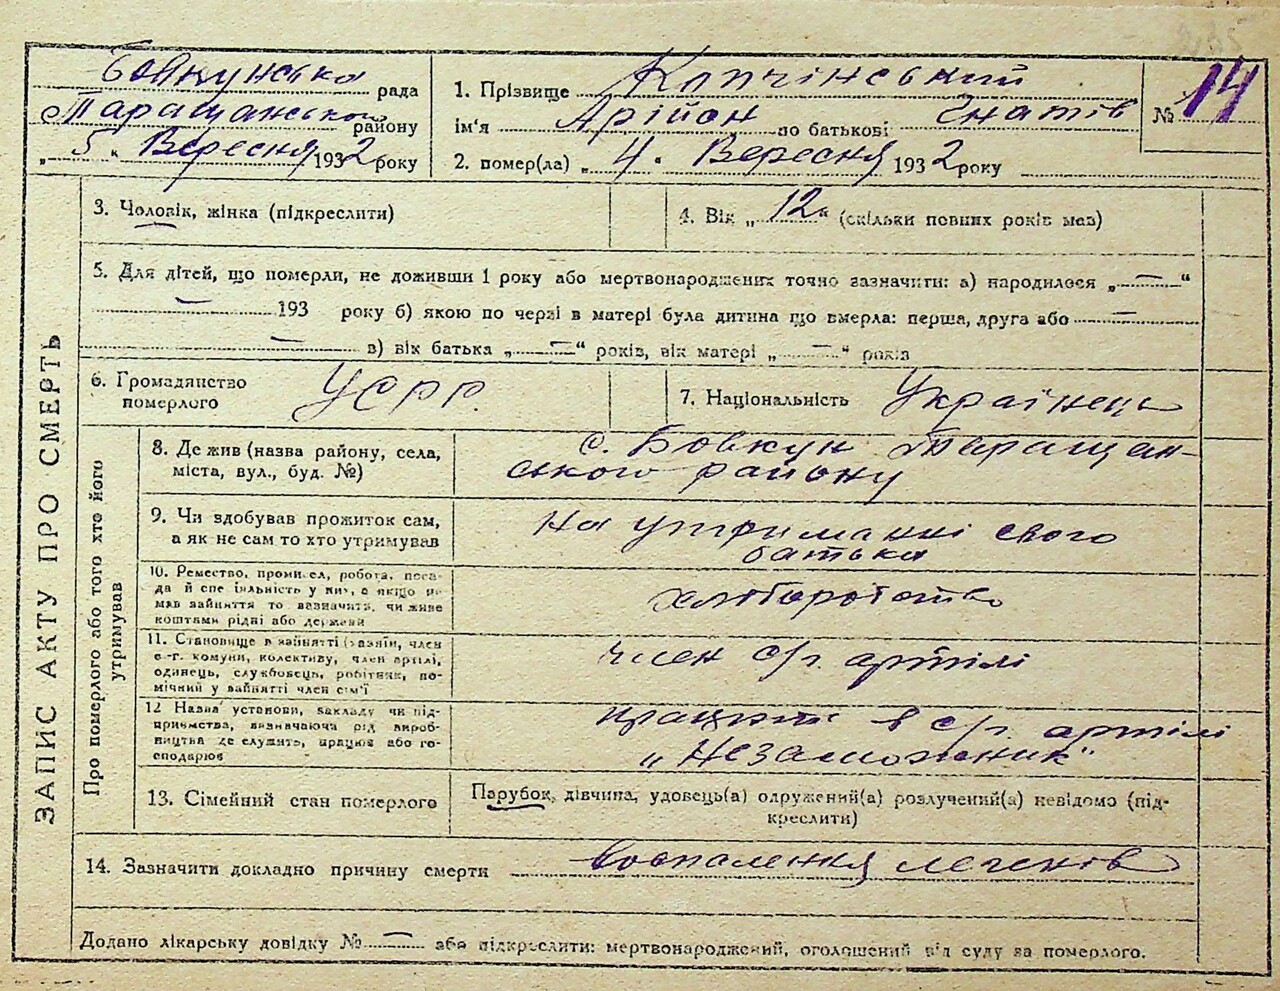 Бовкунська рада
Таращанського району
„ 5 „ Вересня 1932 року
1. Прізвище Капчінський
ім'я Арійон по батькові Гнатів
2. помер(ла) „ 4 „ Вересня 1932 року
№ 14
3. Чоловік, жінка (підкреслити)
4. Вік „ 12 “ (скільки повних років мав)
5. Для дітей, що померли, не доживши 1 року або мертвонароджених точно зазначити: а) народилося „ — “
— 193 року б) якою по черзі в матері була дитина що вмерла: перша, друга або —
— в) вік батька „ — “ років, вік матері „ — “ років
6. Громадянство
померлого
УСРР
7. Національність Українець
ЗАПИС АКТУ ПРО СМЕРТЬ
Про померлого або того хто його
утримував
8. Де жив (назва району, села,
міста, вул., буд. №)
с. Бовкун Таращан-
ського району
9. Чи здобував прожиток сам,
а як не сам то хто утримував
на утриманні свого
батька
10. Ремество, промисел, робота, поса-
да й спеціяльність у них, а якщо не
мав зайняття то зазначити, чи живе
коштами рідні або держави
хліборобство
11. Становище в зайнятті (хазяїн, член
с.-г. комуни, колективу, член артілі,
одинець, службовець, робітник, по-
мічний у зайнятті член сім'ї
член с/г. артілі
12 Назва установи, закладу чи під-
приємства, визначаючи рід вироб-
ництва де служить, працює або го-
сподарює
працює в с/г. артілі
„Незаможник“
13. Сімейний стан померлого
Парубок, дівчина, удовець(а) одружений(а) розлучений(а) невідомо (під-
креслити)
14. Зазначити докладно причину смерти воспалення легенів
Додано лікарську довідку № — або підкреслити: мертвонароджений, оголошений від суду за померлого.